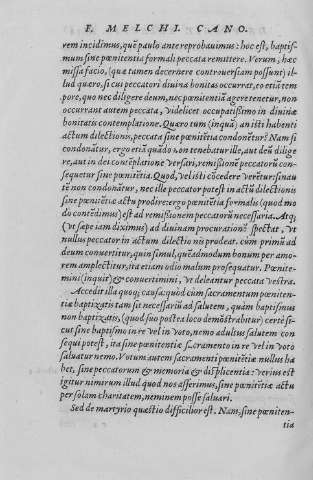 F. MELCHI. CANO.
rem incidimus, quẽ paulo ante reprobauimus: hoc est, baptis-
mum sine pœnitẽtia formali peccata remittere. Verum, hæc
missa facio, (quæ tamen decernere controuersiam possunt) il-
lud quæro, si cui peccatori diuina bonitas occurrat, eo etiã tem
pore, quo nec diligere deum, nec pœnitentiã agere tenetur, non
occurrant autem peccata, videlicet occupatissimo in diuinæ
bonitatis contemplatione. Quæro eum (inquã) an isti habenti
actum dilectionis, peccata sine pœnitẽtia condonẽtur? Nam si
condonãtur, ergo etiã quãdo non tenebatur ille, aut deũ dilige
re, aut in dei contẽplatione versari, remissionẽ peccatorũ con-
sequetur sine pœnitẽtia. Quod, vel isti cõcedere verẽtur: sin au
tẽ non condonãtur, nec ille peccator potest in actũ dilectionis
sine pœnitẽtiæ actu prodire: ergo pœnitẽtia formalis (quod mo
do contẽdimus) est ad remissionem peccatorũ necessaria. Atq;
(vt sæpe iam diximus) ad diuinam procurationẽ spectat, vt
nullus peccator in actum dilectionis prodeat. cum primũ ad
deum conuertitur, quin simul, quẽadmodum bonum per amo-
rem amplectitur, ita etiam odio malum prosequatur. Pœnite-
mini (inquit) & conuertimini, vt deleantur peccata vestra.
Accedit illa quoq; causa: quod cum sacramentum pœniten-
tiæ baptizatis tam sit necessariũ ad salutem, quàm baptismus
non baptizatis, (quod suo postea loco demõstrabitur) certè si-
cut sine baptismo in re vel in voto, nemo adultus salutem con
sequi potest, ita sine pœnitẽtiæ sacramento in re vel in voto
saluatur nemo. Votum autem sacramenti pœnitẽtiæ nullus ha
bet, sine peccatorum & memoria & displicentia: verius est
igitur nimirum illud quod nos asserimus, sine pœnitẽtiæ actu
per solam charitatem, neminem posse saluari.
Sed de martyrio quæstio difficilior est. Nam, sine pœniten-
tia